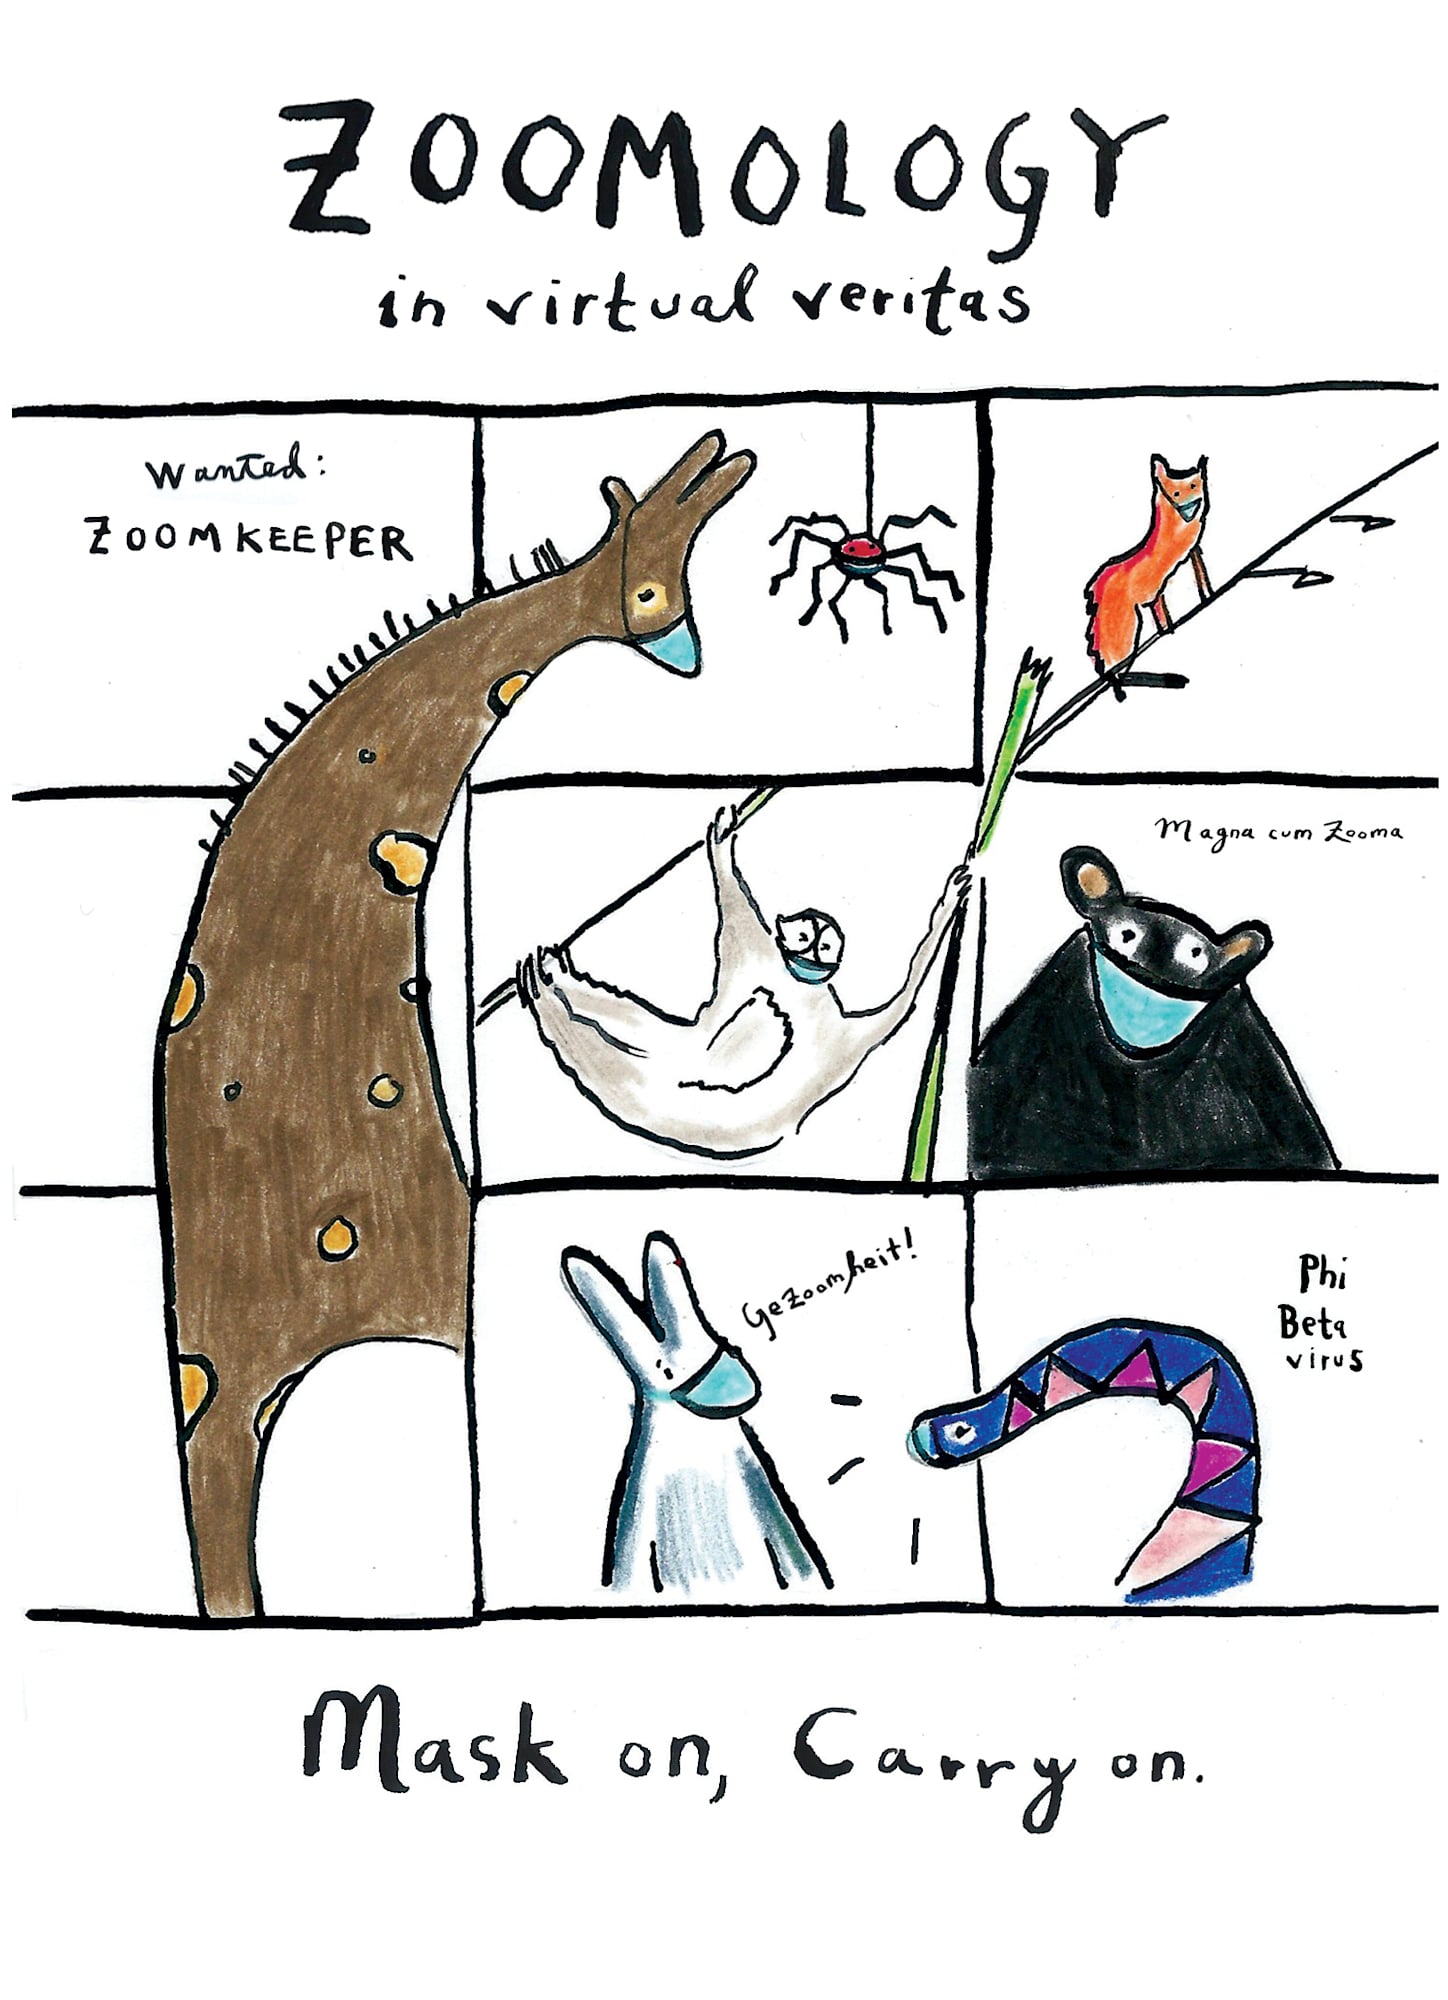 ZOOMOLOGY
in virtual veritas
Wanted:
ZOOMKEEPER
Magna cum Zooma
Gezoomheit!
Phi
Beta
virus
Mask on, Carry on.